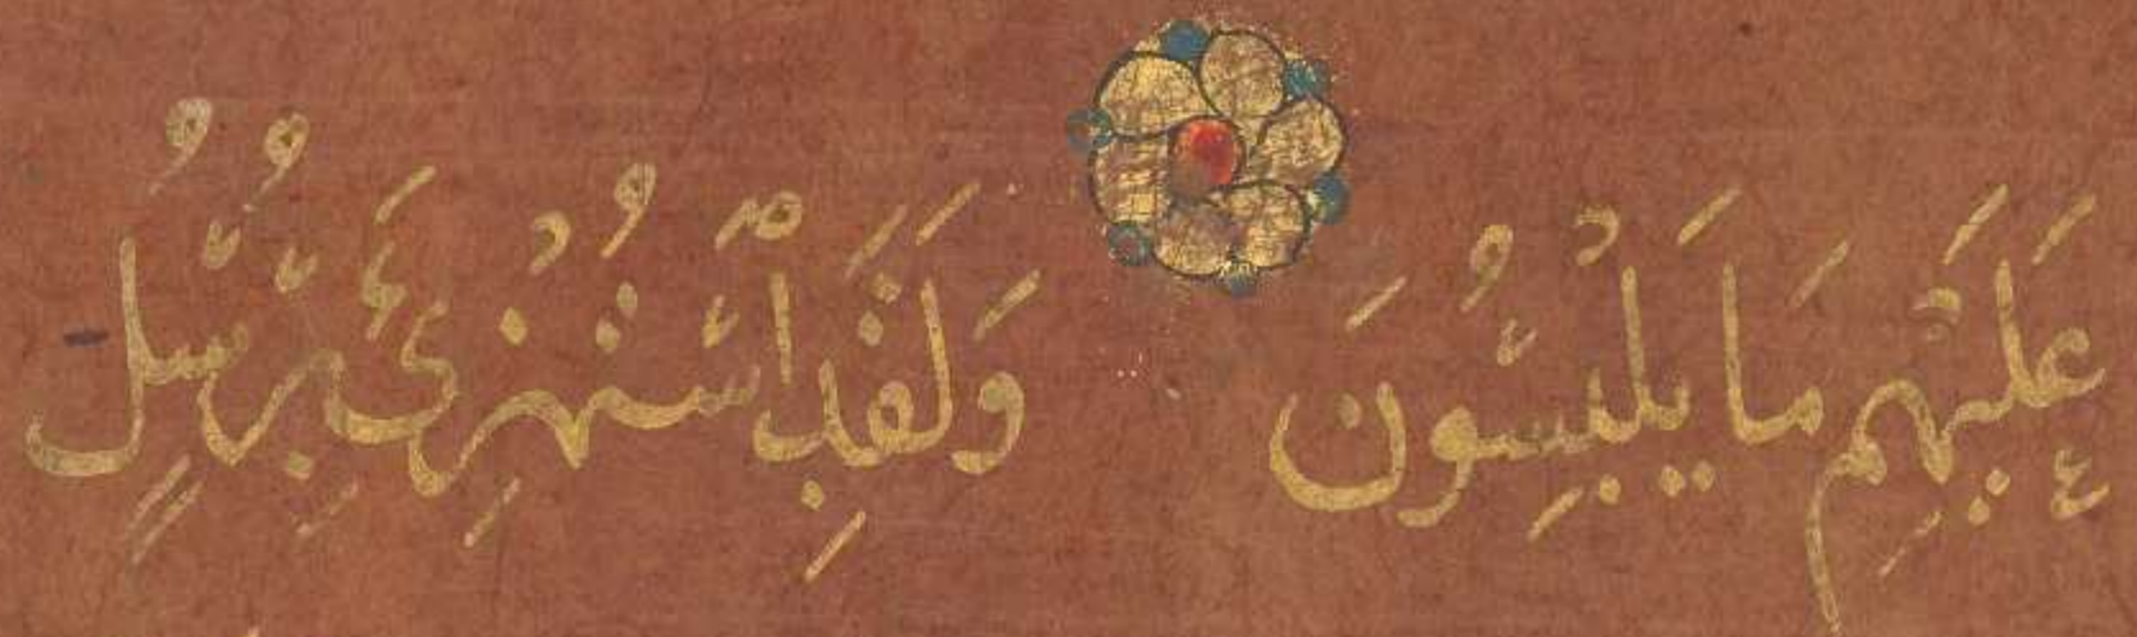 عَلَيْهِم مَا يَلْبِسُونَ وَلَقَدِ اسْتُهْزِئَ بِرُسُلٍ